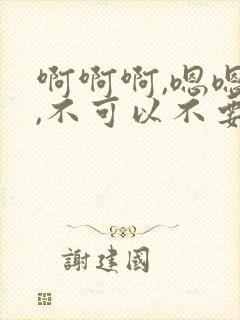 啊啊啊,嗯嗯
,不可以不要
謝建國